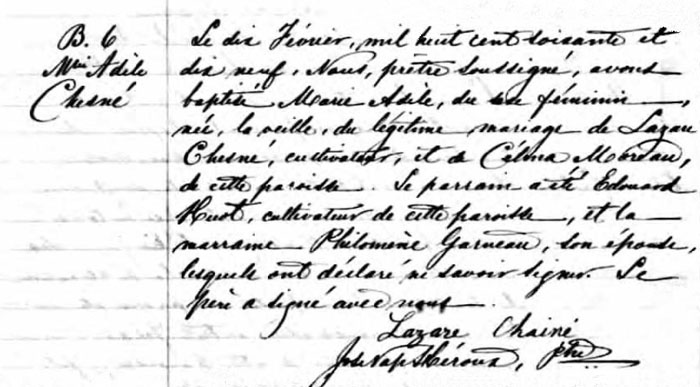 B. 6
Mie Adile
Chesné
Le dix Février, mil huit cent soixante et
dix neuf, Nous, prêtre soussigné, avons
baptisé Marie Adile, du sexe féminin,
née, la veille, du légitime mariage de Lazare
Chesné, cultivateur, et de Célina Moreau,
de cette paroisse. Le parrain a été Edouard
Huot, cultivateur de cette paroisse, et la
marraine Philomène Garneau, son épouse,
lesquels ont déclaré ne savoir signer. Le
père a signé avec nous.
Lazare Chainé
Jos. Nap. Héroux, ptre